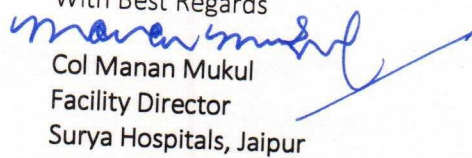 With Best Regards
Manan Mukul
Col Manan Mukul
Facility Director
Surya Hospitals, Jaipur